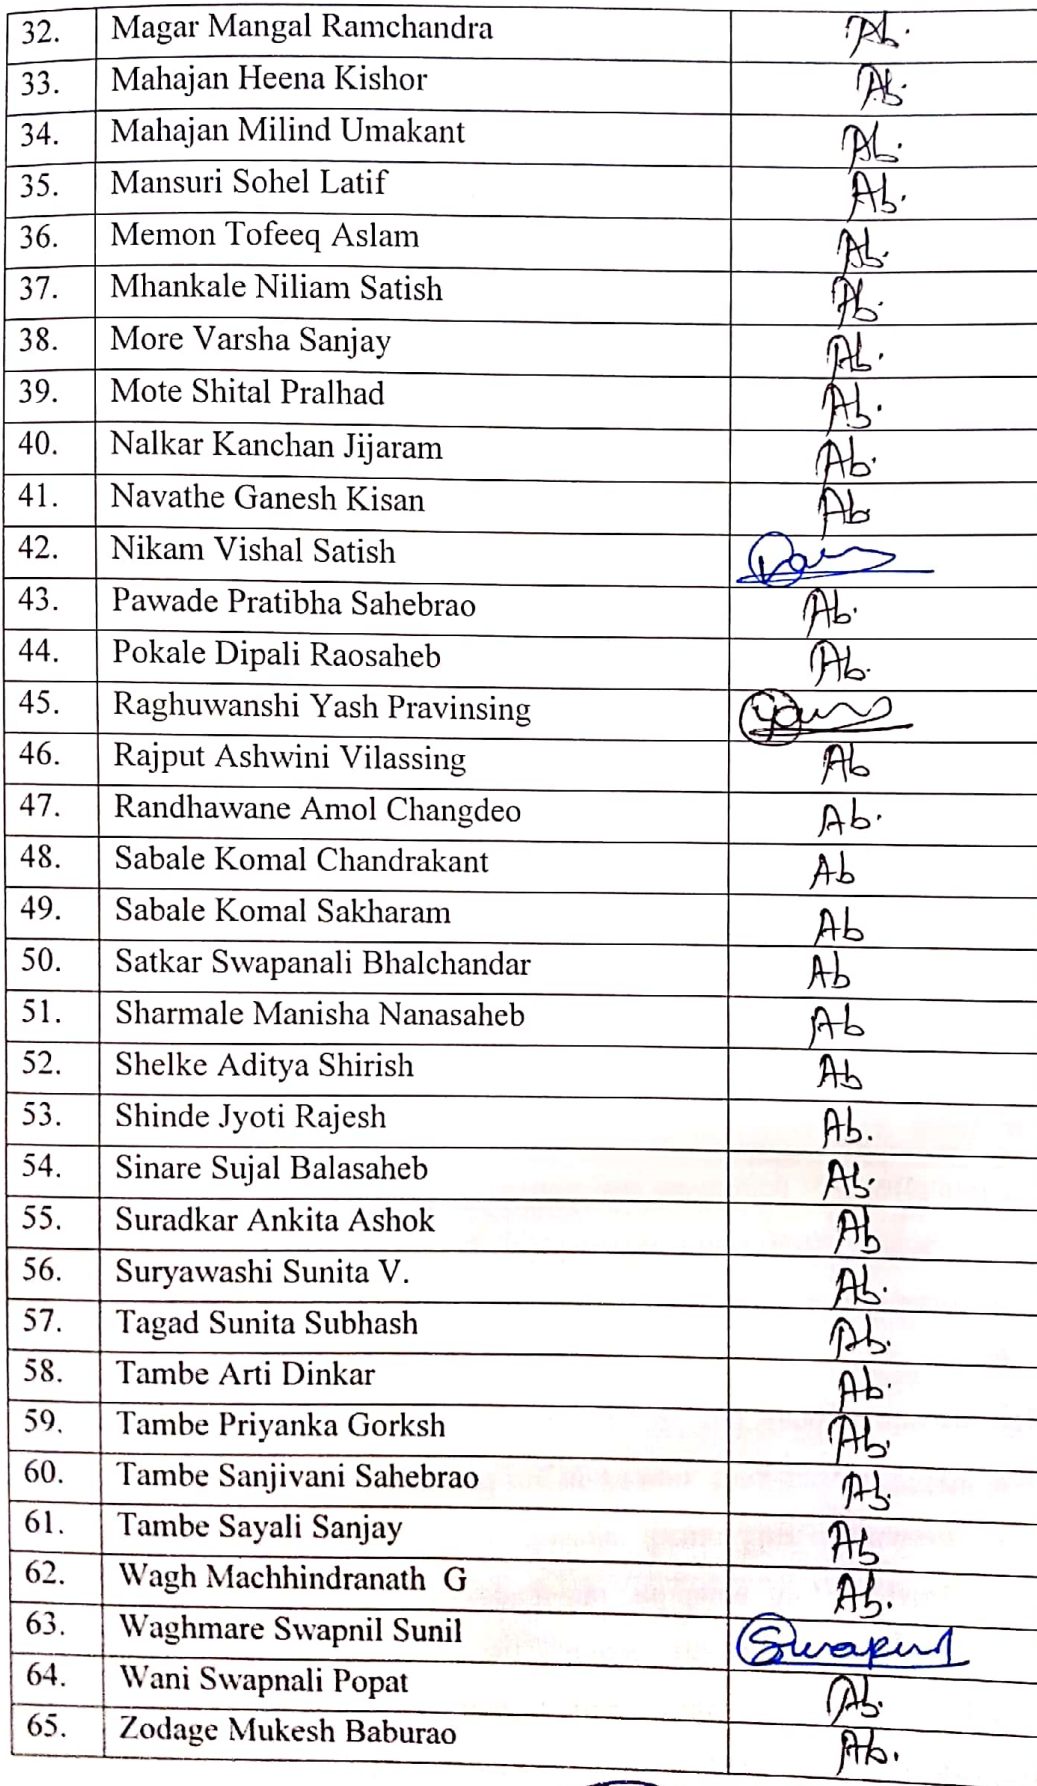 32. Magar Mangal Ramchandra Ab.
33. Mahajan Heena Kishor Ab.
34. Mahajan Milind Umakant Ab.
35. Mansuri Sohel Latif Ab.
36. Memon Tofeeq Aslam Ab.
37. Mhankale Niliam Satish Ab.
38. More Varsha Sanjay Ab.
39. Mote Shital Pralhad Ab.
40. Nalkar Kanchan Jijaram Ab.
41. Navathe Ganesh Kisan Ab
42. Nikam Vishal Satish
43. Pawade Pratibha Sahebrao Ab.
44. Pokale Dipali Raosaheb Ab.
45. Raghuwanshi Yash Pravinsing
46. Rajput Ashwini Vilassing Ab
47. Randhawane Amol Changdeo Ab.
48. Sabale Komal Chandrakant Ab
49. Sabale Komal Sakharam Ab
50. Satkar Swapanali Bhalchandar Ab
51. Sharmale Manisha Nanasaheb Ab
52. Shelke Aditya Shirish Ab
53. Shinde Jyoti Rajesh Ab.
54. Sinare Sujal Balasaheb Ab.
55. Suradkar Ankita Ashok Ab
56. Suryawashi Sunita V. Ab.
57. Tagad Sunita Subhash Ab.
58. Tambe Arti Dinkar Ab.
59. Tambe Priyanka Gorksh Ab.
60. Tambe Sanjivani Sahebrao Ab.
61. Tambe Sayali Sanjay Ab
62. Wagh Machhindranath G Ab.
63. Waghmare Swapnil Sunil Swapnil
64. Wani Swapnali Popat Ab.
65. Zodage Mukesh Baburao Ab.